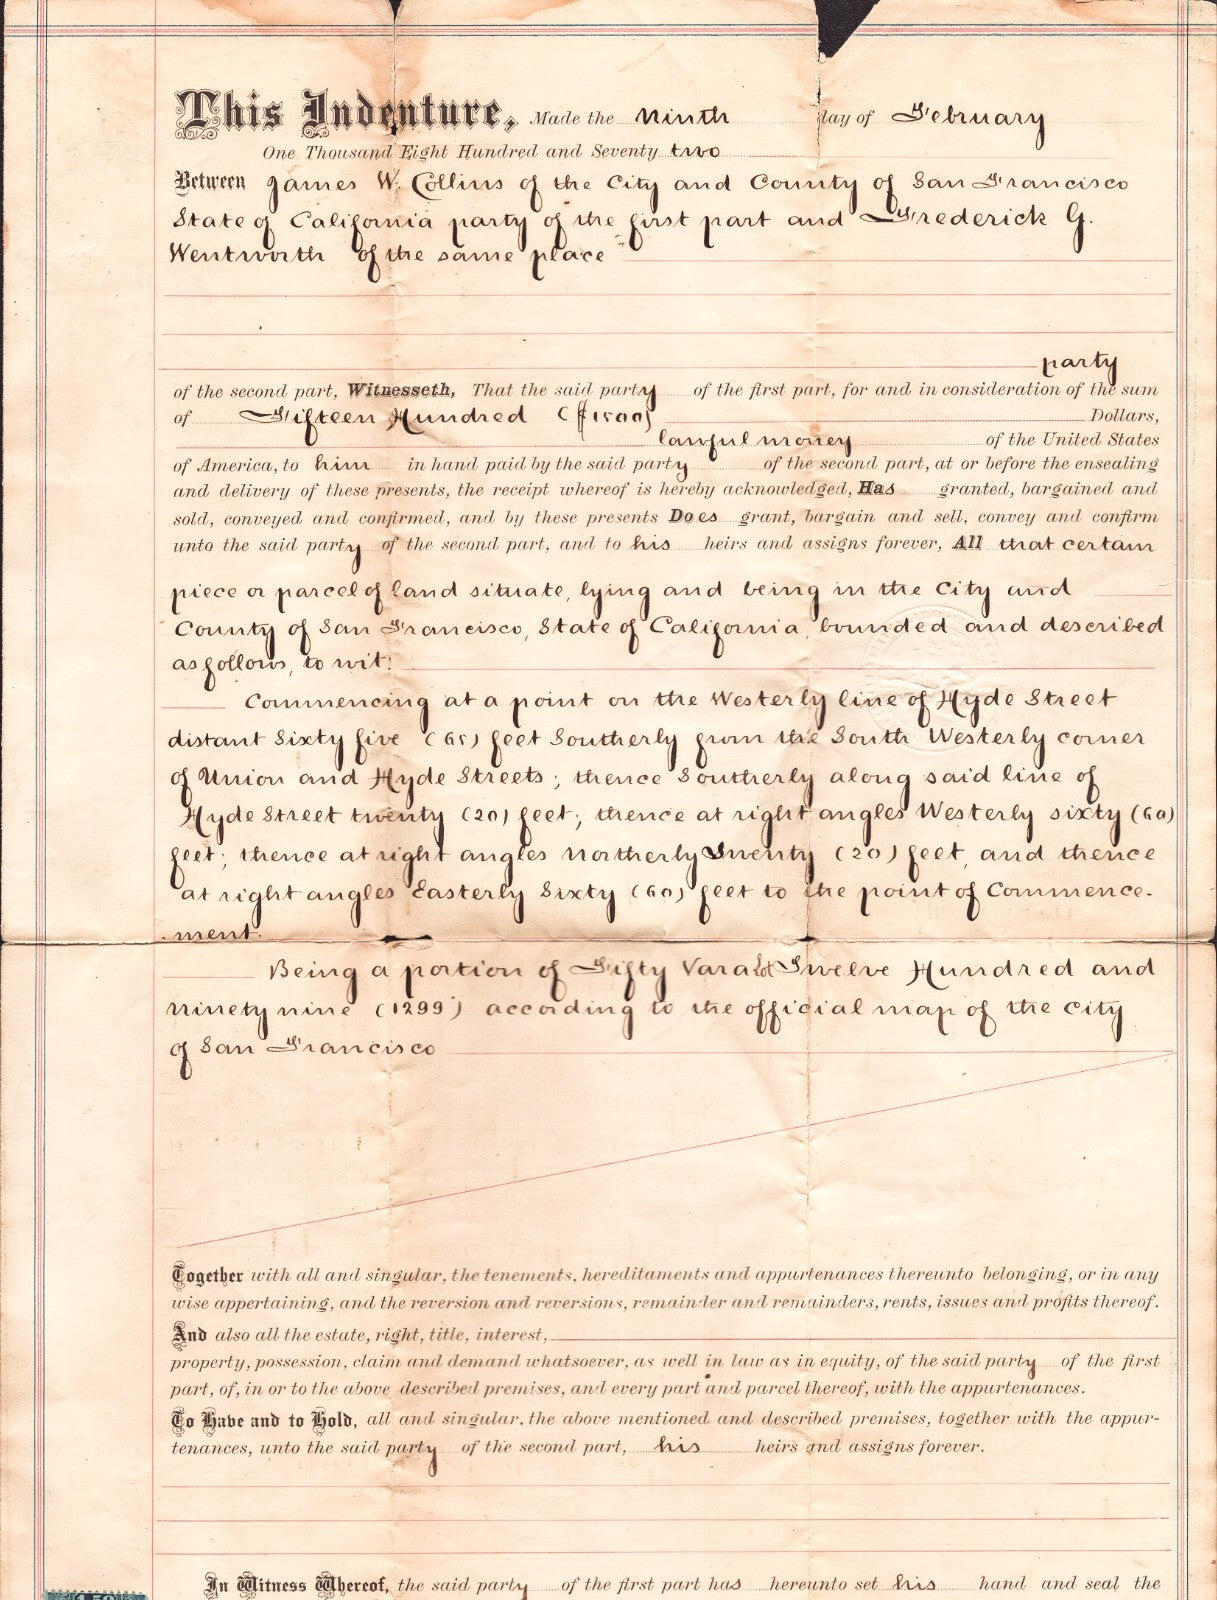 This Indenture, Made the ninth day of February
One Thousand Eight Hundred and Seventy two
Between James W. Collins of the City and County of San Francisco
State of California party of the first part and Frederick G.
Wentworth of the same place
party
of the second part, Witnesseth, That the said party of the first part, for and in consideration of the sum
of Fifteen Hundred ($1500) Dollars,
lawful money of the United States
of America, to him in hand paid by the said party of the second part, at or before the ensealing
and delivery of these presents, the receipt whereof is hereby acknowledged, Has granted, bargained and
sold, conveyed and confirmed, and by these presents Does grant, bargain and sell, convey and confirm
unto the said party of the second part, and to his heirs and assigns forever, All that certain
piece or parcel of land situate, lying and being in the City and
County of San Francisco, State of California, bounded and described
as follows, to wit:
Commencing at a point on the Westerly line of Hyde Street
distant Sixty five (65) feet Southerly from the South Westerly corner
of Union and Hyde Streets; thence Southerly along said line of
Hyde Street twenty (20) feet; thence at right angles Westerly sixty (60)
feet; thence at right angles Northerly Twenty (20) feet, and thence
at right angles Easterly Sixty (60) feet to the point of Commence-
ment.
Being a portion of Fifty Vara Lot Twelve Hundred and
ninety nine (1299) according to the official map of the City
of San Francisco
Together with all and singular, the tenements, hereditaments and appurtenances thereunto belonging, or in any
wise appertaining, and the reversion and reversions, remainder and remainders, rents, issues and profits thereof.
And also all the estate, right, title, interest,
property, possession, claim and demand whatsoever, as well in law as in equity, of the said party of the first
part, of, in or to the above described premises, and every part and parcel thereof, with the appurtenances.
To Have and to Hold, all and singular, the above mentioned and described premises, together with the appur-
tenances, unto the said party of the second part, his heirs and assigns forever.
In Witness Whereof, the said party of the first part has hereunto set his hand and seal the